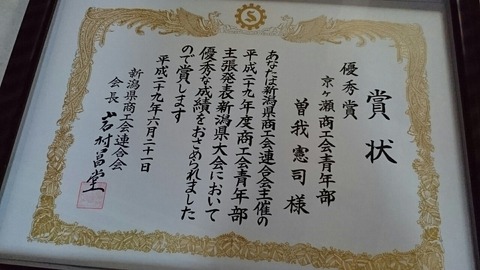 賞状
優秀賞
京ヶ瀬商工会青年部
曽我憲司様
あなたは新潟県商工会連合会主催の
平成二十九年度商工会青年部
主張発表新潟県大会において
優秀な成績をおさめられました
ので賞します
平成二十九年六月二十一日
新潟県商工会連合会
会長
S